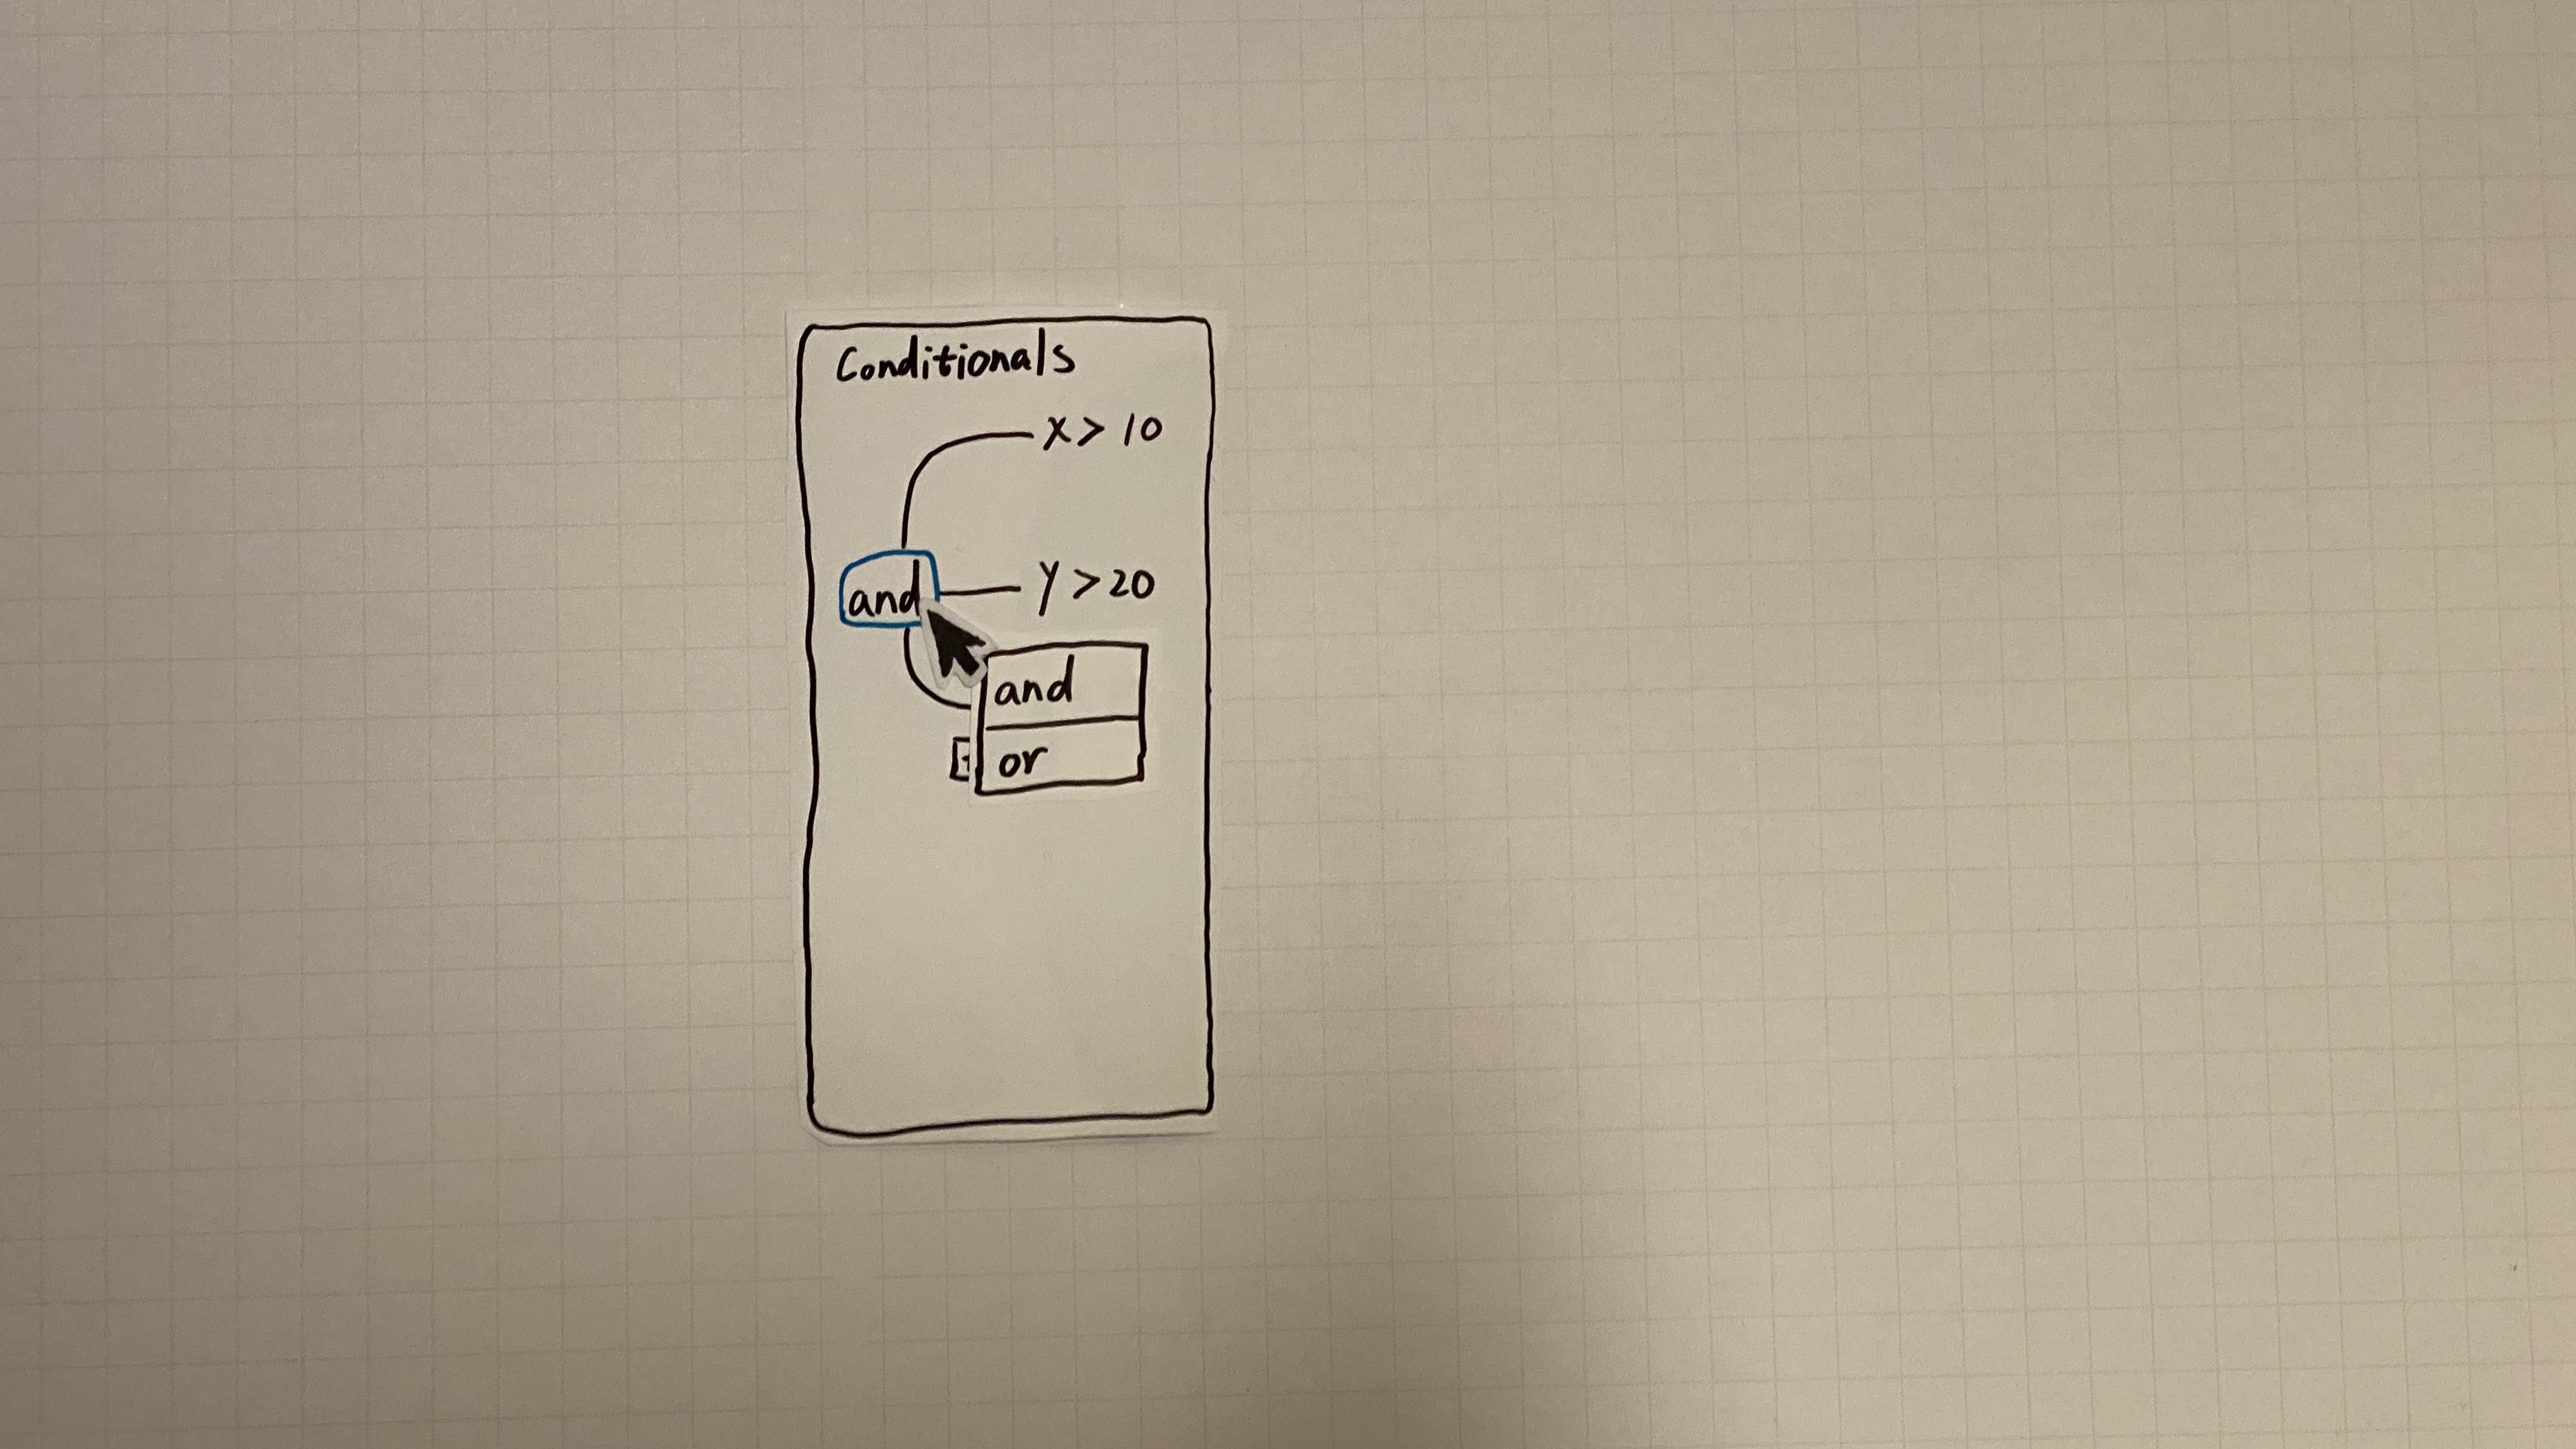 Conditionals
x > 10
and
y > 20
and
or